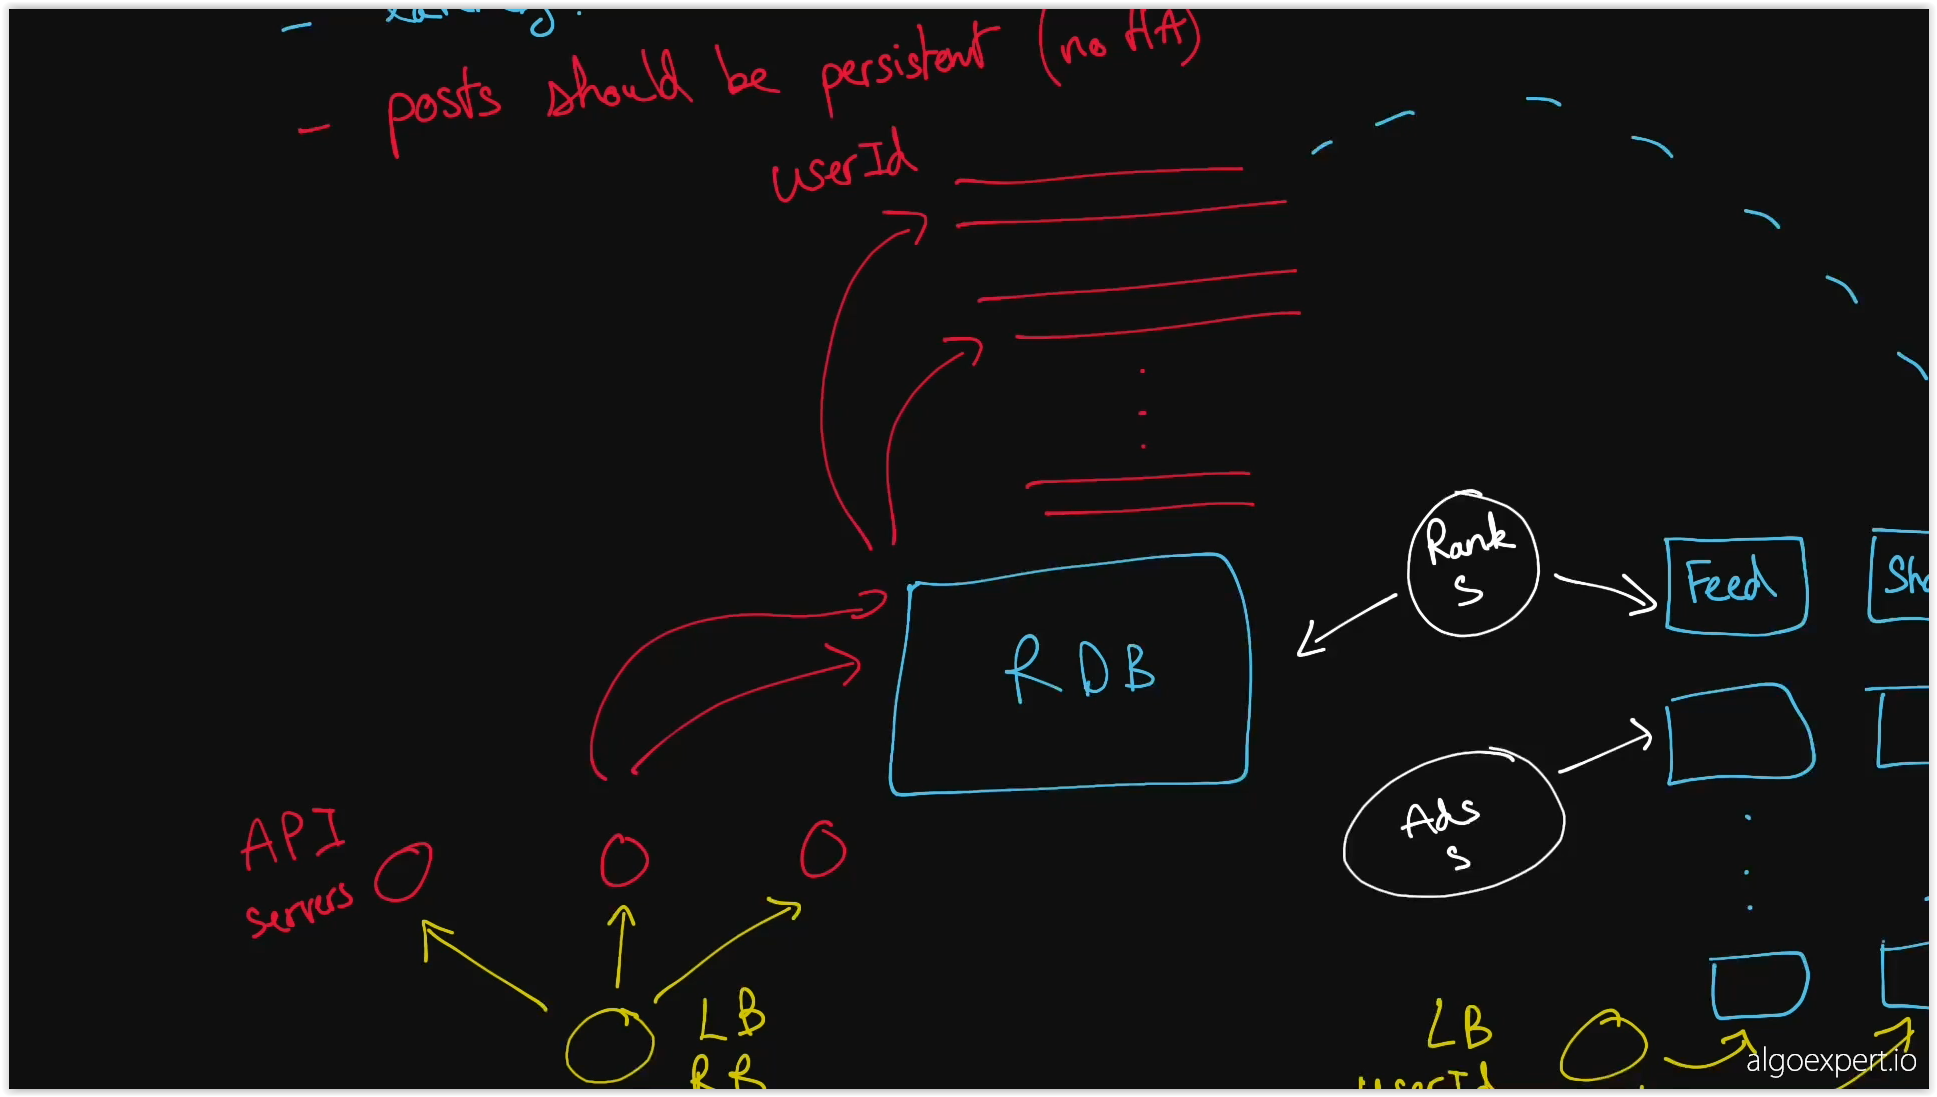 - posts should be persistent (no HA)
userId
Rank
S
Feed
RDB
Ads
S
API
servers
LB
RR
LB
userId
algoexpert.io